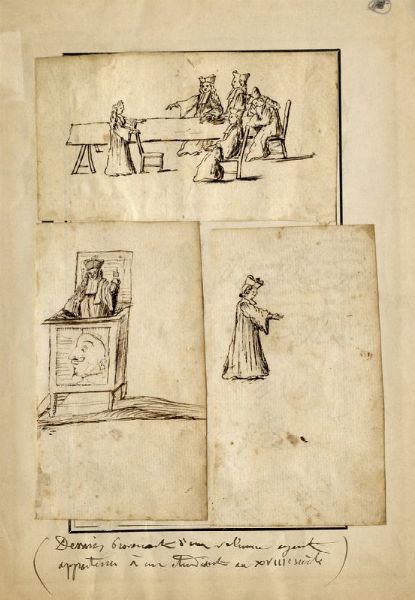 (Dessins provenant d'un volume ayant
appartenu à un étudiant au XVIIIe siècle)